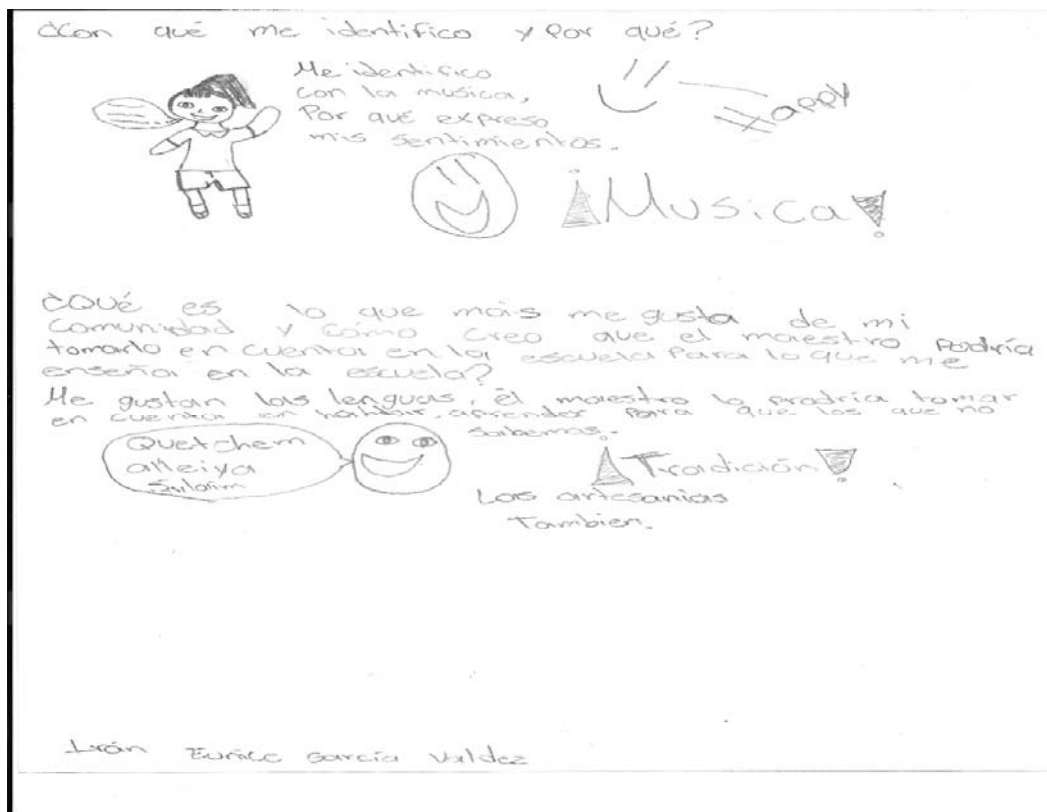 ¿Con qué me identifico y Por qué?
Me identifico
con la musica,
Por qué expreso
mis sentimientos.
Happy
¡Musica!
¿Qué es lo que más me gusta de mi
Comunidad y cómo creo que el maestro Podría
tomarlo en cuenta en la escuela Para lo que me
enseña en la escuela?
Me gustan las lenguas, él maestro lo prodría tomar
en cuenta en hablar, aprender Para que los que no
sabemos.
Quetchem
alleiya
¡Tradición!
Las artesanias
Tambien.
Eunice García Valdez